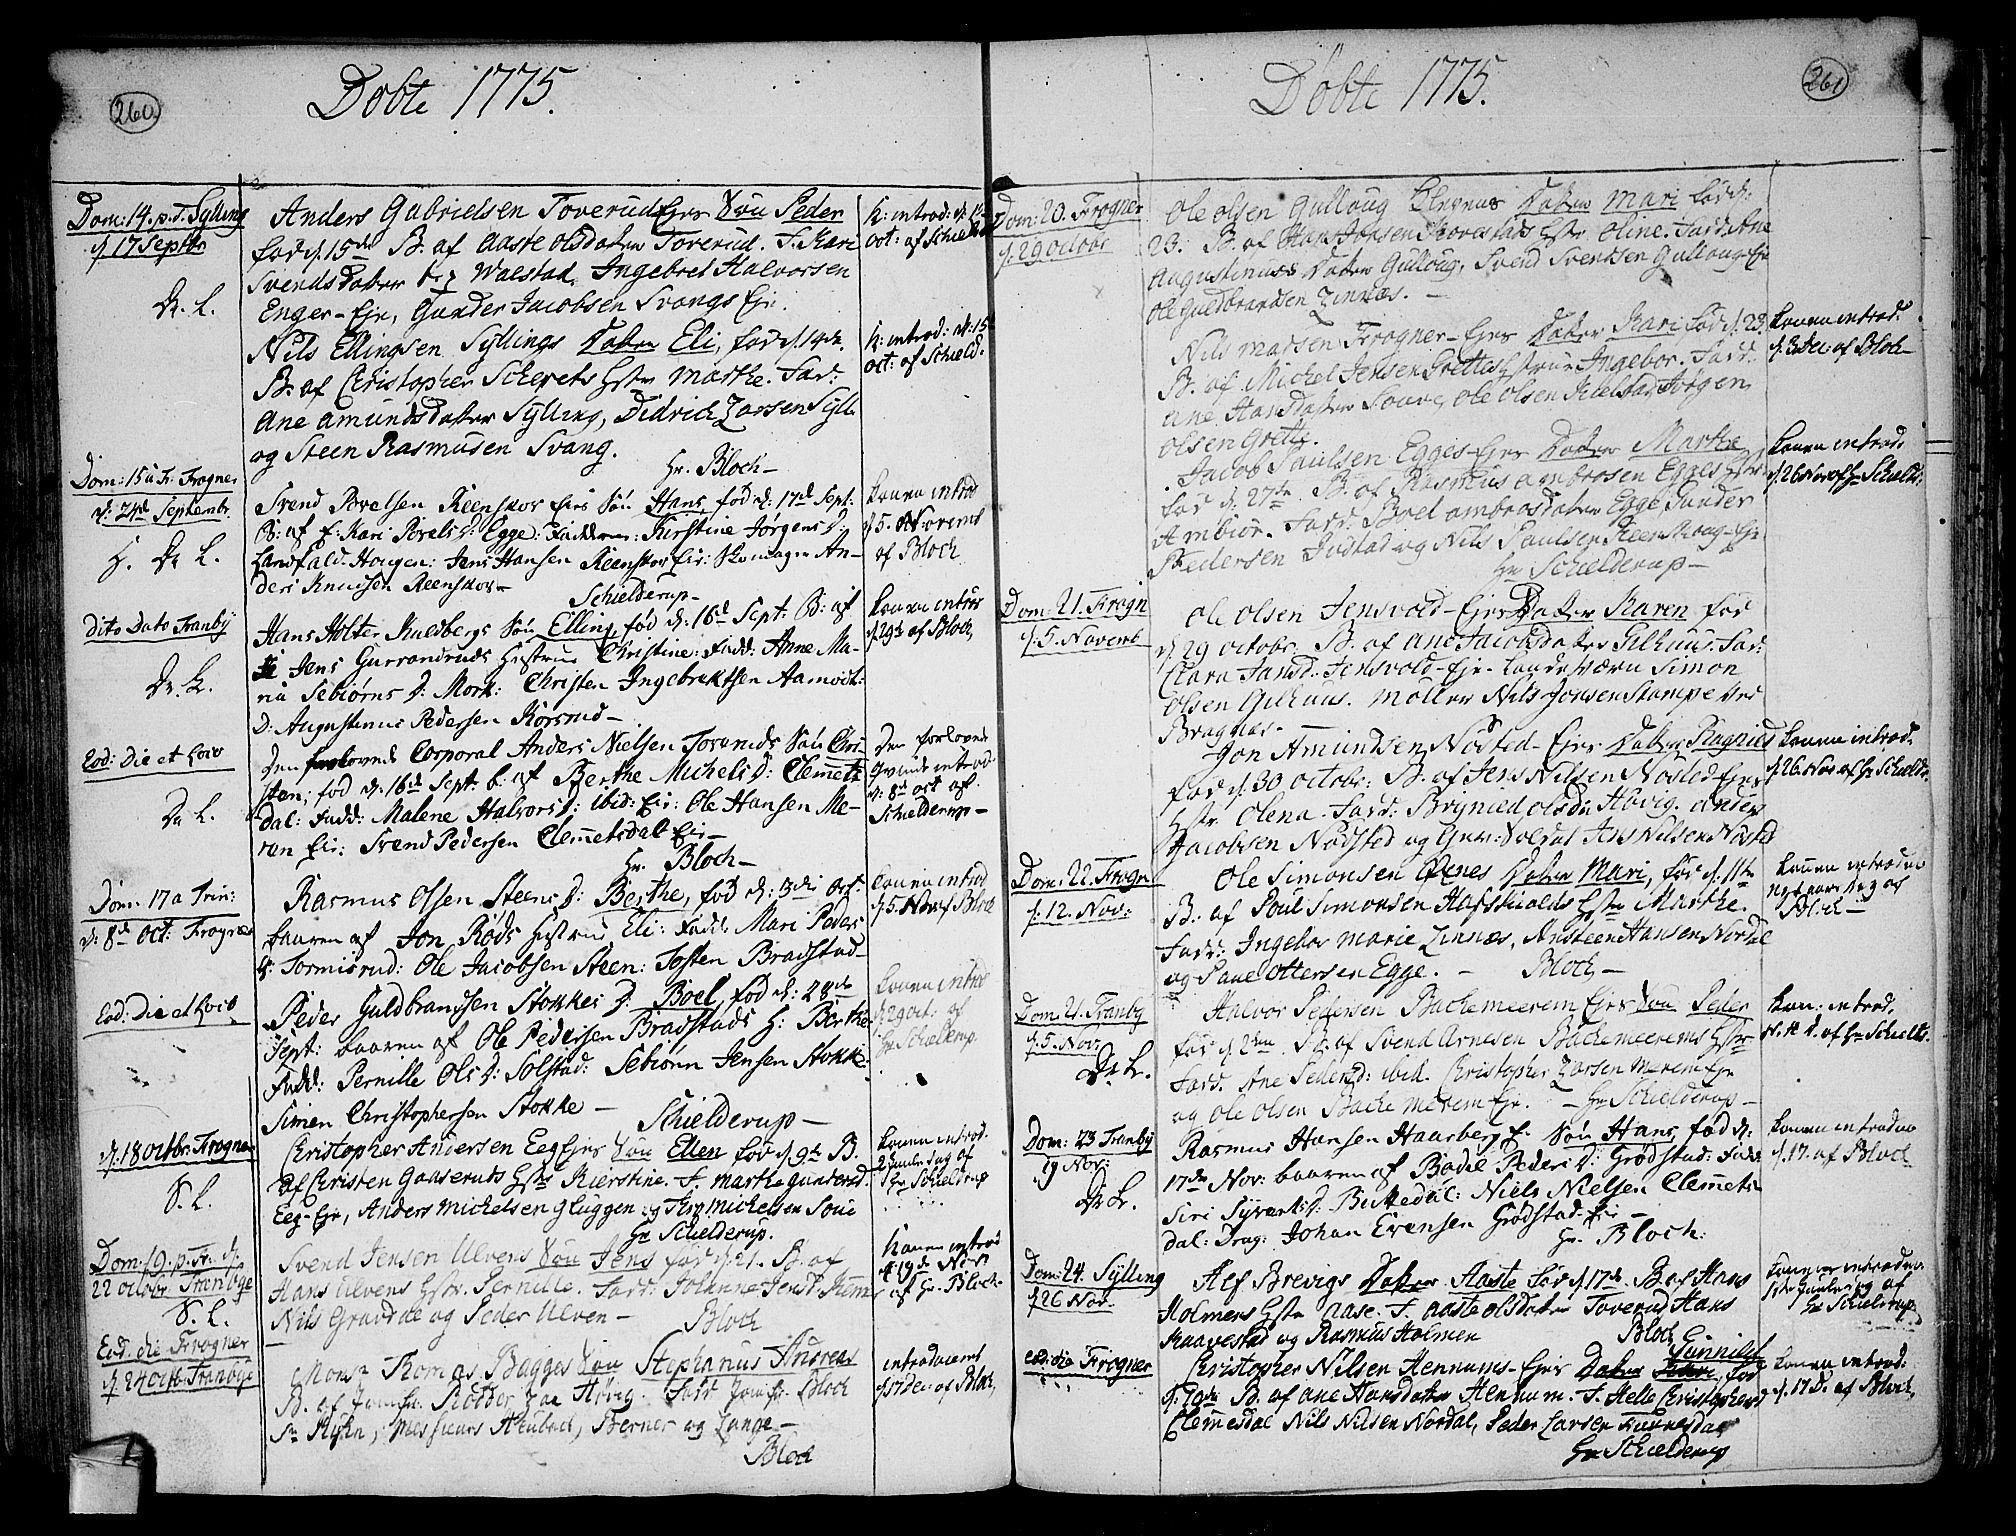 260
Døbte 1775.
Dom: 14. p. T. Sylling
d. 17 Septbr
Dr. L.
Anders Gabrielsen Toverud Ejes Søn Peder
fød d. 15de B. af Aaste Olsdatter Toverud. F. Kari
Svends Datter Walstad, Ingebret Halvorsen
Enger-Eje, Gunder Jacobsen Svangs Eje.
K: introd: d.
oct: af Schield
Nils Ellingsen Syllings Dotter Eli, fød d. 14de
B. af Christopher Scherets Hstr Marthe. Fad:
Ane Amundsdatter Sylling, Didrich Larsen Sÿll
og Steen Rasmusen Svang.
Hr. Bloch-
K: introd: d. 15
oct: af Schield.
Dom: 15 a Tr. Frogner
d: 24de Septembr.
H. Dr L.
Svend Povelsen Reenskov Eies Søn Hans, fød d: 17de Sept:
B: af f: Kari Povels D: Egge: Fadderne: Kirstine Jørgens D:
Landfald: Hougen: Jens Hansen Reenskov Eie: Skomager An-
ders Knudsen Reenskov-
Schielderup-
Konen introd
d 5. Novemb
af Bloch
Dito Dato Tranby
Dr. L.
Hans Holter Kuldbergs Søn Elling, fød d. 16de Sept: B: af
Jens Gurrandruds Hustrue Christine: Fadd: Anne Ma-
ria Sebiørns D: Mork: Christen Ingebrektsen Aamodt:
D: Augustinus Pedersen Korsrud-
Konen introd
d. 29de af Bloch
Eod: Die et Loco
Dr L.
Den forlovede Corporal Anders Nielsen Toveruds Søn Chri-
sten, fød d: 16de Sept: b. af Berthe Michels D: Clemmets
dal: Fadd: Malene Halvors D: ibid: Eie: Ole Hansen Me-
ren Eie: Svend Pedersen Clemmetsdal Eie-
Hr. Bloch-
Den forlovede
Qvinde introd
d: 8de oct af
Schielderup-
Dom: 17 a Trin:
d: 8de Oct: Frogner
Rasmus Olsen Steens D: Berthe, fød d: 3die Oct:
baaren af Jon Røds Hustrue Eli: Fadd: Mari Peders
D: Tormisrud: Ole Jacobsen Steen: Tosten Bradstad-
Konen introd
d. 5. Nov af Bloch
Eod: Die et Loco
Peder Guldbrandsen Stokkes D: Boel, fød d: 28de
Sept: baaren af Ole Pedersen Bradstads H: Berthe
Fadd: Pernille Ols D: Solstad: Sebiørn Jensen Stokke
Simen Christophersen Stokke-
Schielderup-
Konen introd
d. 29 oct. af
Hr Schielderup.
d. 18 octbr. Frogner
S. L.
Christopher Andersen Eeg Ejes Søn Ellen fød d. 9de B.
af Christen Gaaseruds Hstr Kierstine. F. Marthe Gundersd.
Eeg-Eje, Anders Michelsen Gluggen og Jens Michelsen Soue
Hr Schielderup.
Konen introd.
af
Hr Schielderup
Dom: 19. p. Tr. d:
22 octobr. Tranbye
S. L.
Svend Jensen Ulvens Søn Jens fød d. 21. B. af
Hans Ulvens Hstr. Pernille. Fadd: Johanne Jensd:
Nils Gravdal og Peder Ulven-
Bloch
Konen introd
d 19de Nov
af Hr. Bloch.
Eod: die Frogner
d. 24 octb. Tranbye
Mons: Thomas Bagges Søn Stephanus Andreas
B. af Jomfr. Bloch
Sr Messieurs Berner og Lange-
Bloch
introduceret
d 17 Dec. af Bloch,
261
Døbte 1775.
Dom: 20. Frogner
d. 29 octobr
Ole Olsen Gulloug Datter Mari fød d:
23: B. af Hans Hstr Oline. Fadd: Ane
Augustinus Datter Gulloug, Svend Svendsen Gulloug-Eje
Ole Guldbrandsen Linnæs.-
Nils Madsen Frogner-Ejes Datter Kari fød d. 23.
B. af Michel Jensen Grettes Hstrue Ingebor. Fadd:
Ane Hansdatter Soue, Ole Olsen Jørgen
Olsen Grette.
Konen introd.
d. 3 Dec: af Bloch-
Jacob Paulsen Egges-Ejes Datter Marthe
fød d. 27de B. af Rasmus Ambrosen Egges Hstr:
Ambior. Fadd: Boel Ambrosdatter Egge, Gunder
Pedersen Justad og Nils Paulsen Reenskoug-Eje
Hr Schielderup-
Konen introd.
d. 26 Nov af Hr Schield:
Dom: 21. Frogn
d. 5. Novemb
Ole Olsen Jensvold-Ejes Datter Karen fød
d. 29 octobr. B. af Ane Jacobsdatter Gilhuus. Fad:
Clara Jensvold-Eje. Landeværn Simon
Olsen Gilhuus. Møller Nils Jonsen Stampe ved
Bragnæs.-
Jon Amundsen Nøsted-Ejes Datter Ragnild
fød d. 30 octobr: B. af Jens Nilsen Nøsted Ejes
Hstr Olena. Fadd: Brynild Olsdr Høvig. Anders
Jacobsen Nødsted og Soldat Jens Nilsen Nøsted
Konen introd.
d. 26. Nov af Hr Schield:
Dom: 22. Frogn
d. 12. Nov:
Ole Simonsen Datter Mari, fød d. 11te
B. af Poul Simonsen Hstr Marthe.
Fadd: Ingebor Marie Linnæs, Ansteen Hansen Nordal
og Paul Ottersen Egge.-
Bloch-
Konen introduc
Nytaars dag af
Bloch-
Dom: 21. Tranby
d. 5. Nov:
Dr L.
Halvor Pedersen Bachemeerem Ejes Søn Peder
fød d. 2den B. af Svend Arnesen Bachemeerems Hstr
Fadd. Ane Pedersd: ibid. Christopher Larsen Merem Eje
og Ole Olsen Bache Merem Eje.
- Hr Schielderup-
Kon: introd.
af Hr Schield:
Dom: 23 Tranby
19 Nov:
Dr L.
Rasmus Hansen Haarberg E. Søn Hans, fød d:
17de Nov: baaren af Bodil Peders D: Grødstad: Fadd:
Siri Syverts D: Bickedal: Niels Nielsen Clemmets-
dal: Drag: Johan Evensen Grødstad-Eie-
Hr. Bloch:
Konen introduc
d. 17. af Bloch
Dom: 24. Sylling
d 26 Nov.
Alf Brevigs Datter Aaste fød d. 17de. B. af Hans
Holmens Hstr Aase. F. Aaste Olsdatter Toverud Hans
Raavestad og Rasmus Holmen
Bloch
Konen introduc.
1ste Juuledag af
Hr Schielderup
eod: die Frogner
Christopher Nilsen Hennums-Ejes Datter Gunnild, fød
d. 20de B. af Ane Hansdatter Hennum. F. Helle Christophersd
Clemmesdal Nils Nilsen Nordal, Peder Larsen
Hr Schielderup
Konen introd:
d. 17 D. af Bloch,